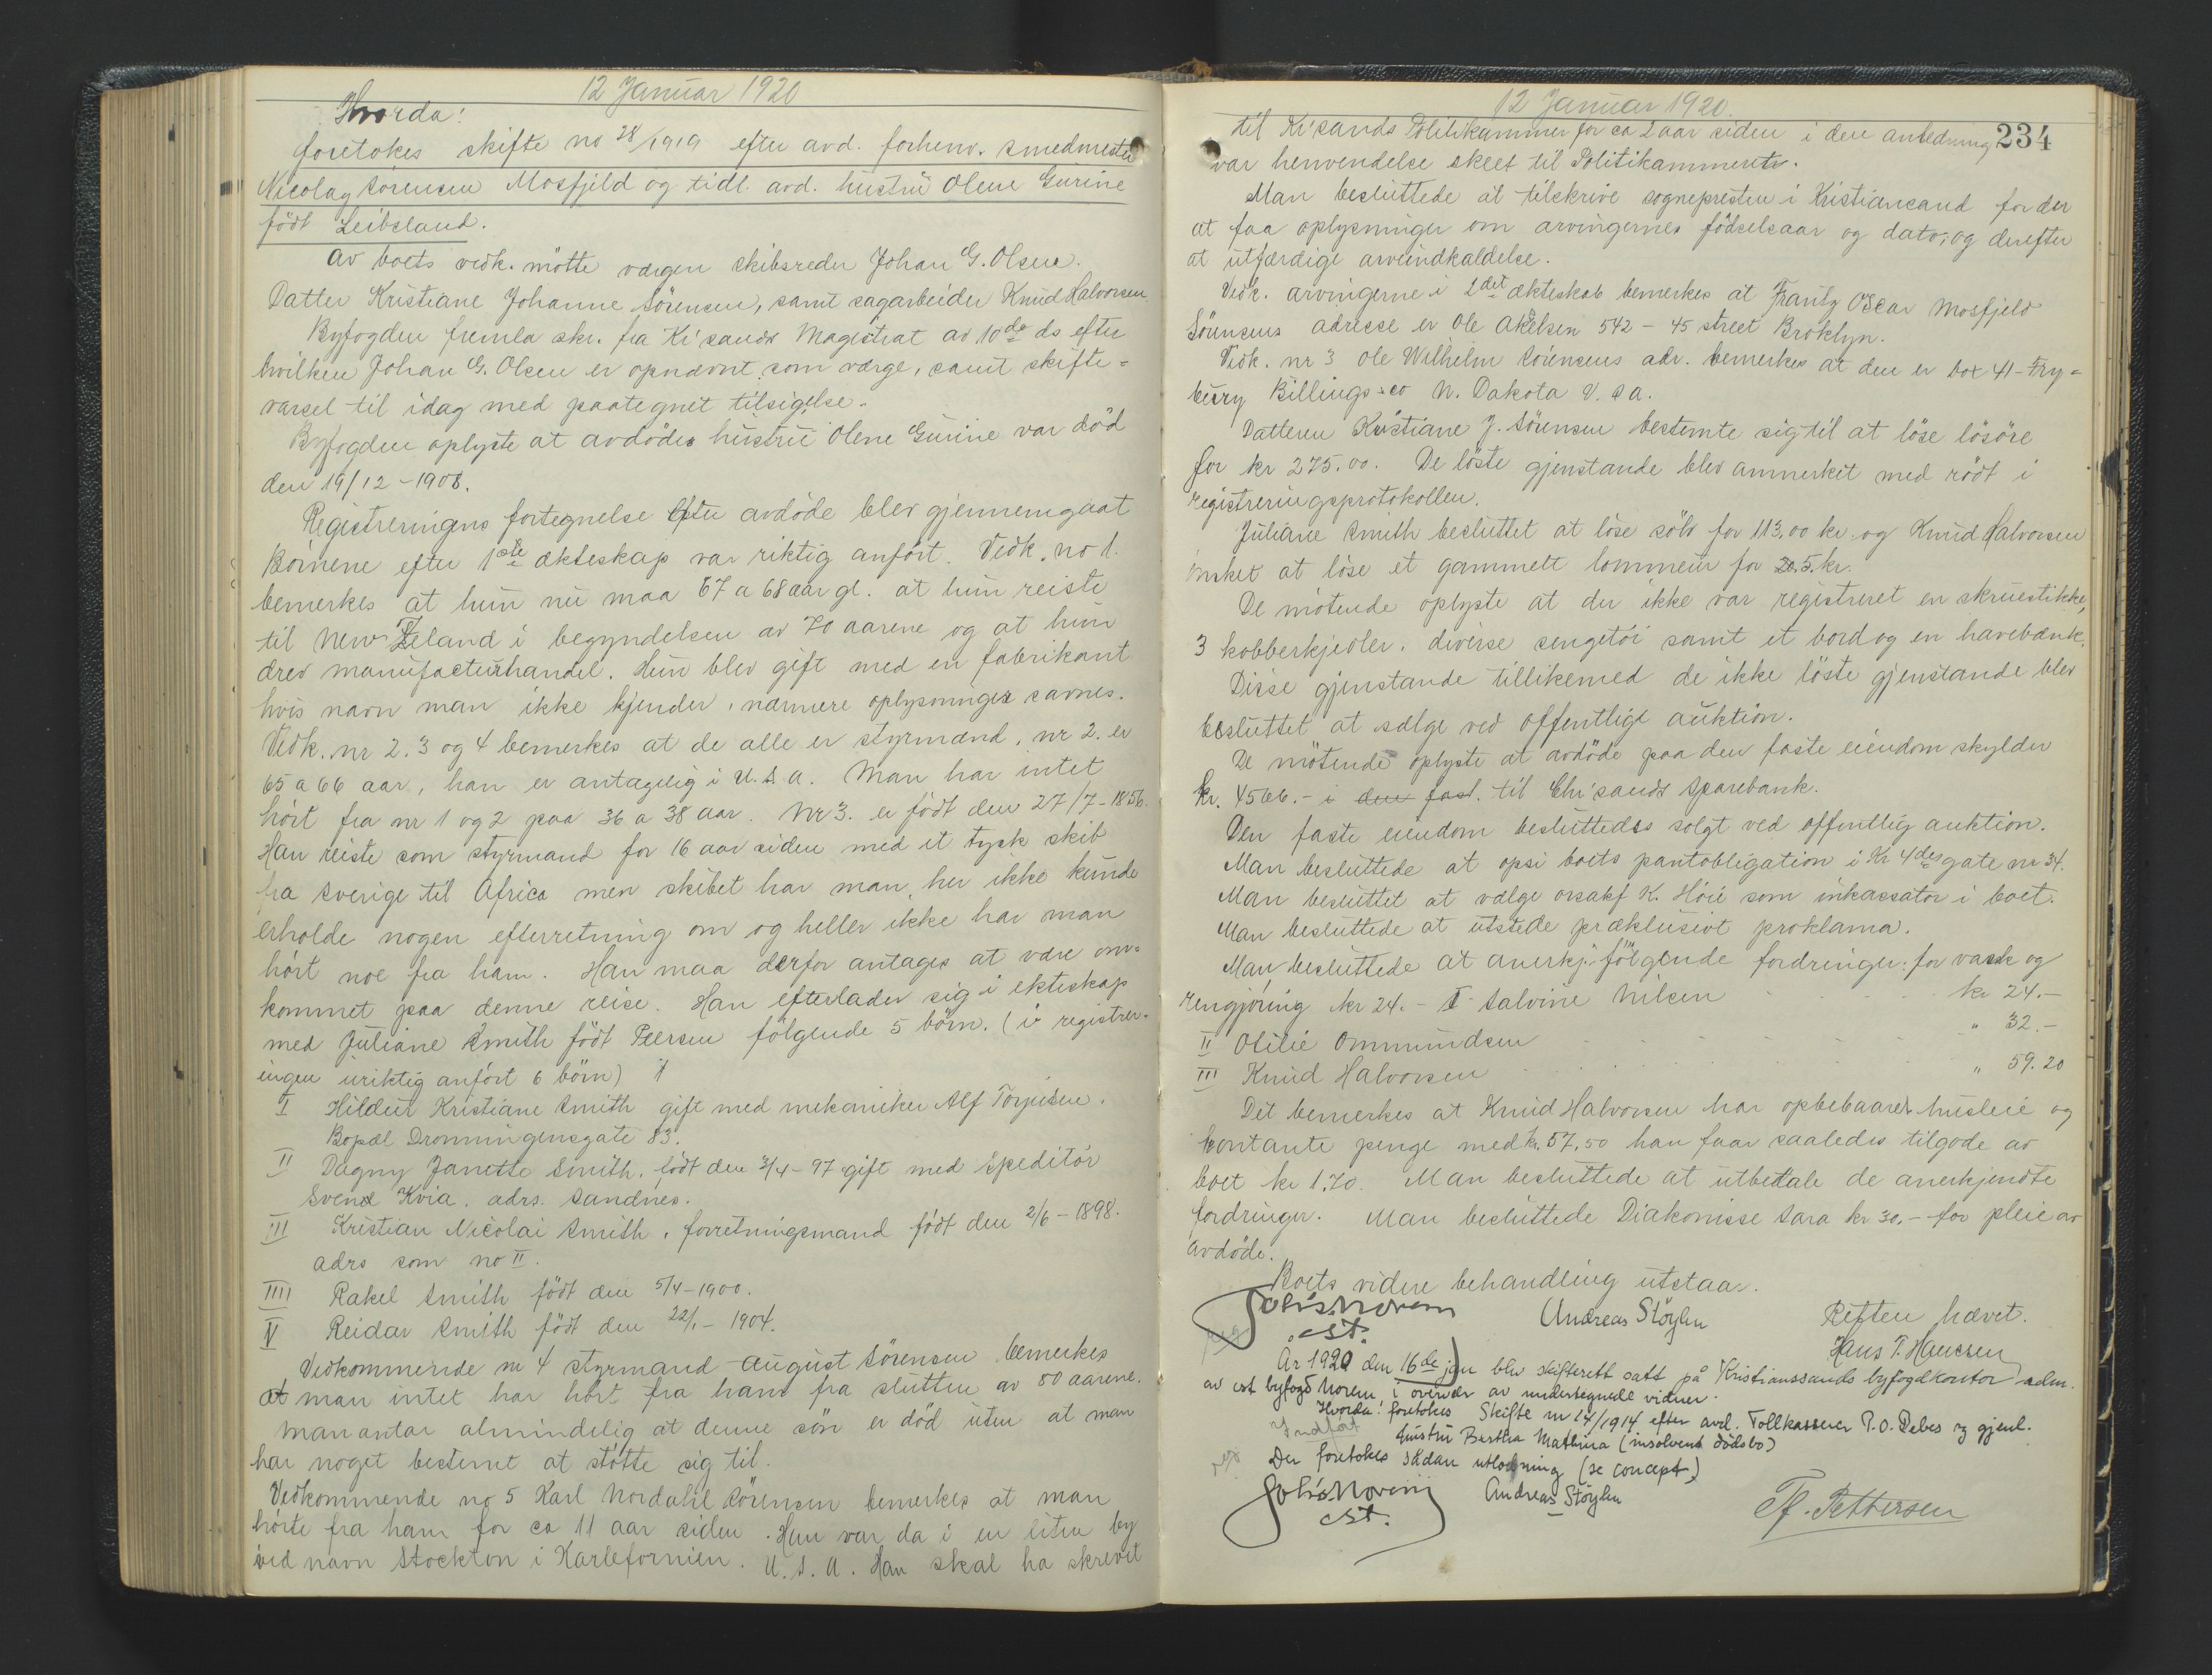 12 Januar 1920
Hvorda:
foretokes skifte no 28/1919 efter avd. forhenv. smedmester
Nicolay Sörensen Mosfjeld og tidl. avd. hustru Olene Gurine
födt Leibsland.
Av boets vedk. mötte værgen skibsreder Johan G. Olsen.
Datter Kristiane Johanne Sörensen, samt sagarbeider Knud Halvorsen.
Byfogden fremla skr. fra Kr'sands Magistrat av 10de ds efter
hvilken Johan G. Olsen er opnævnt som værge, samt skifte=
varsel til idag med paategnet tilsigelse.
Byfogden oplyste at avdödes hustru Olene Gurine var död
den 19/12-1908.
Registreringens fortegnelse efter avdöde blev gjennemgaat
Börnene efter 1ste ekteskap var riktig anfört. Vedk. no 1.
bemerkes at hun nu maa 67 a 68 aar gl. at hun reiste
til New Zeland i begyndelsen av 70 aarene og at hun
drev manufacturhandel. Hun blev gift med en fabrikant
hvis navn man ikke kjender, nærmere oplysninger savnes.
Vedk. nr 2. 3 og 4 bemerkes at de alle er styrmænd, nr 2. er
65 a 66 aar, han er antagelig i U.S.A. Man har intet
hört fra nr 1 og 2 paa 36 a 38 aar. Nr 3. er födt den 27/7-1856.
Han reiste som styrmand for 16 aar siden med et tysk skib
fra Sverige til Africa men skibet har man her ikke kunde
erholde nogen efterretning om og heller ikke har man
hört noe fra ham. Han maa derfor antages at være om=
kommet paa denne reise. Han efterlader sig i ekteskap
med Juliane Smith födt Peersen fölgende 5 börn. (i registrer=
ingen uriktig anfört 6 börn)
I Hildur Kristiane Smith gift med mekaniker Alf Torjusen.
Bopæl Dronningensgate 83.
II Dagny Janette Smith, födt den 3/4-97 gift med Speditör
Svend Kvia. adrs. Sandnes.
III Kristian Nicolai Smith, forretningsmand födt den 2/6-1898.
adrs som no II.
IIII Rakel Smith födt den 5/4-1900.
V Reidar Smith födt den 22/1-1904.
Vedkommende nr 4 styrmand August Sörensen bemerkes
at man intet har hört fra ham fra slutten av 80 aarene.
Man antar almindelig at denne sön er död uten at man
har noget bestemt at stötte sig til.
Vedkommende no 5 Karl Nordahl Sörensen bemerkes at man
hörte fra ham for ca 11 aar siden. Han var da i en liten by
ved navn Stockton i Karlefornien. U.S.A. Han skal ha skrevet
12 Januar 1920.
234
til Kr'sands Politikammer for ca 2 aar siden i den anledning
var henvendelse skeet til Politikammeret.
Man besluttede at tilskrive sognepresten i Kristiansand for der
at faa oplysninger om arvingernes födselsaar og dato, og derefter
at utfærdige arveindkaldelse.
Vedk. arvingerne i 2det ekteskab bemerkes at Frantz Oscar Mosfjeld
Sörensens adresse er Ole Akelsen 542 - 45 street Broklyn.
Vedk. nr 3 Ole Wilhelm Sörensens adr. bemerkes at den er box 41 - Fry=
burg Billings co N. Dakota U.S.A.
Datteren Kristiane J. Sörensen bestemte sig til at löse lösöre
for kr 275.00. De löste gjenstande blev anmerket med rödt i
registreringsprotokollen.
Juliane Smith besluttet at löse sölv for 113,00 kr og Knud Halvorsen
önsket at löse et gammelt lommeur for 5. kr.
De mötende oplyste at der ikke var registreret en skruestikke,
3 kobberkjedler, diverse sengetöi samt et bord og en havebænk.
Disse gjenstande tillikemed de ikke löste gjenstande blev
besluttet at sælge ved offentlig auktion.
De mötende oplyste at avdöde paa den faste eiendom skylder
kr. 4566.- i den fast. til Chr'sands Sparebank.
Den faste eiendom besluttedes solgt ved offentlig auktion.
Man besluttede at opsi boets pantobligation i Kr 4des gate nr 34.
Man besluttet at vælge orsakf K. Höie som inkassator i boet.
Man besluttede at utstede præklusivt proklama.
Man besluttede at anerkj. fölgende fordringer: for vask og
rengjöring kr 24.- I Salvine Nilsen kr 24.-
II Otilie Ommundsen " 32.-
III Knud Halvorsen " 59.20
Det bemerkes at Knud Halvorsen har opbebaaret husleie og
kontante penge med kr. 57,50 han faar saaledes tilgode av
boet kr 1.70. Man besluttede at utbetale de anerkjendte
fordringer. Man besluttede Diakonisse Sara kr 30.- for pleie av
avdöde.
Boets videre behandling utstaar.
Johs. Norem Andreas Stöylen Retten hævet.
cst. Hans T. Hansen
År 1920 den 16de jan blev skifterett satt på Kristianssands byfogdkontor adm.
av cst byfogd Norem i overvær av undertegnede vidner.
Hvorda! foretokes Skifte nr 14/1914 efter avd. Tollkasserer P.O. Debes og gjenl.
Indfört hustru Bertha Mathina (insolvent dödsbo)
Der foretokes sådan utlodning (se concept)
Johs Norem Andreas Stöylen
cst. Tf. Pettersen